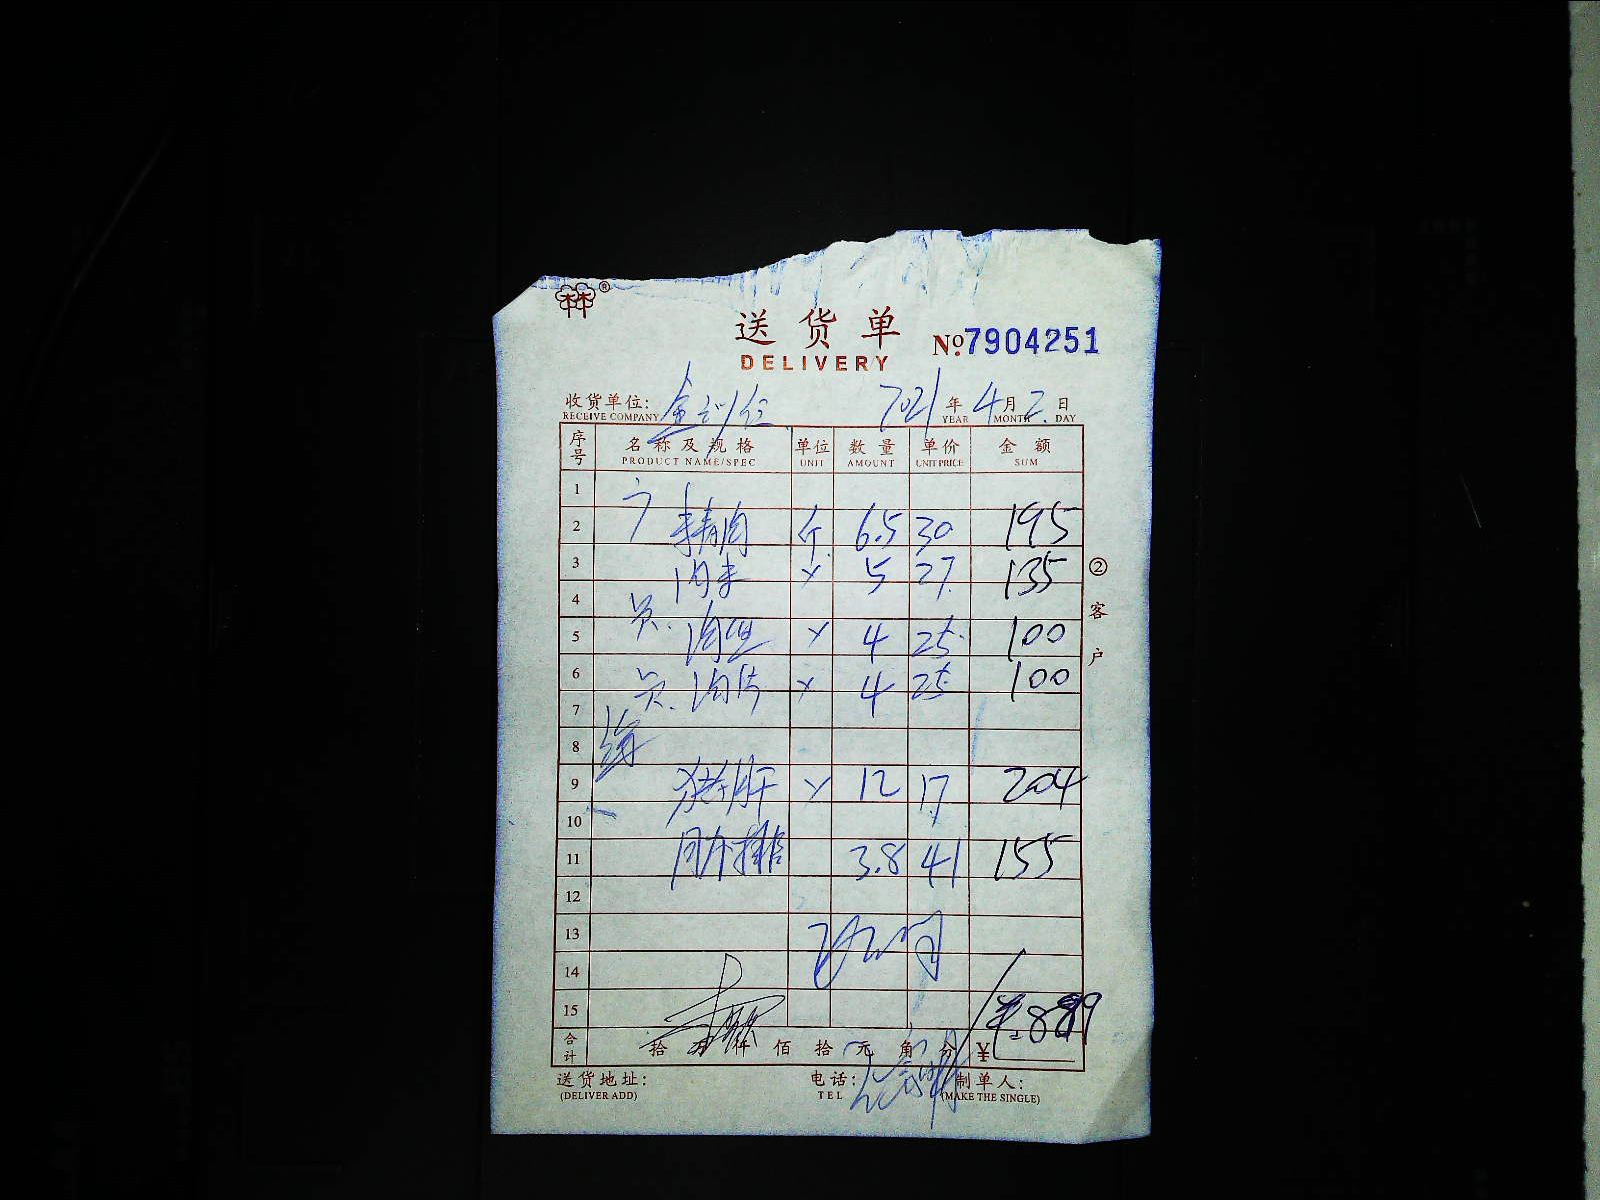 林®
送货单
DELIVERY
№7904251
收货单位: 2021年4月2日
RECEIVE COMPANY YEAR MONTH DAY
序号 名称及规格 单位 数量 单价 金额
PRODUCT NAME/SPEC UNIT AMOUNT UNIT PRICE SUM
1
2 精肉 斤 6.5 30 195
3 肉末 〃 5 27 135
4
5 肉丝 〃 4 25 100
6 肉片 〃 4 25 100
7
8
9 猪肝 〃 12 17 204
10
11 肋排 3.8 41 155
12
13
14
15 ¥889
合计 拾 万 仟 佰 拾 元 角 分 ¥
②客户
送货地址: 电话: 制单人:
(DELIVER ADD) TEL (MAKE THE SINGLE)